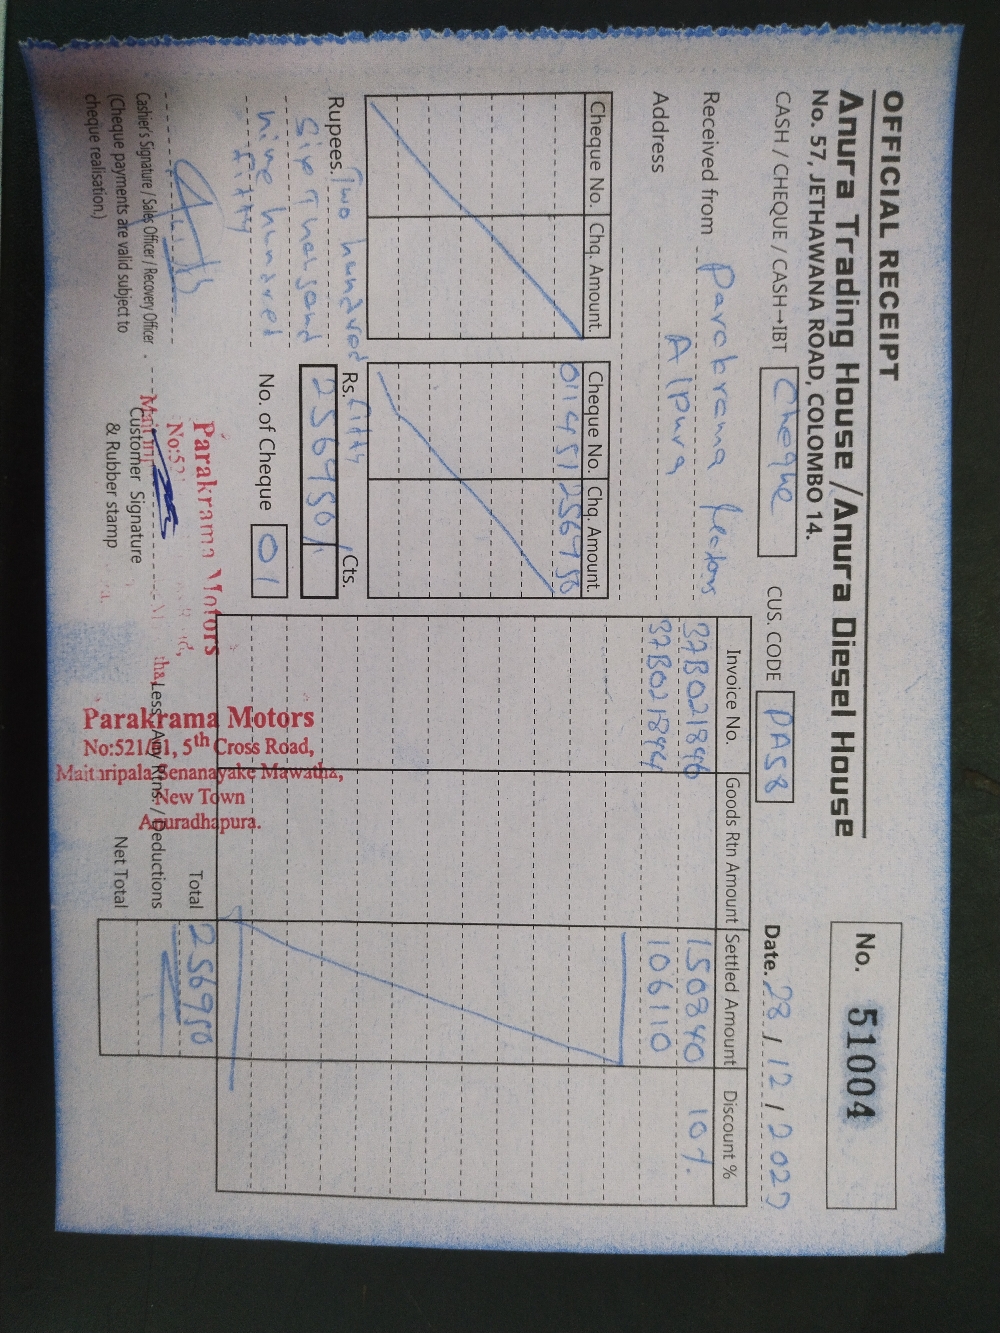 OFFICIAL RECEIPT
Anura Trading House /Anura Diesel House
No. 57, JETHAWANA ROAD, COLOMBO 14.
No. 51004
CASH / CHEQUE / CASH→IBT Cheque
CUS. CODE PA58
Date. 28 / 12 / 2022
Received from Parakrama
Address A/pura
Cheque No. Chq. Amount. Cheque No. Chq. Amount.
011451 256950
Rupees. Two hundred fifty
six thousand
nine hundred
fifty
Rs. Cts.
256950/
No. of Cheque 01
Invoice No. Goods Rtn Amount Settled Amount Discount %
37B021846 150840 10%
37B021844 106110
Total 256950
Less: Any Rtns. / Deductions
Net Total
Cashier's Signature / Sales Officer / Recovery Officer
(Cheque payments are valid subject to
cheque realisation.)
Customer Signature
& Rubber stamp
Parakrama Motors
No:52
Parakrama Motors
No:521/11, 5th Cross Road,
Maitaripala Senanayake Mawatha,
New Town
Anuradhapura.